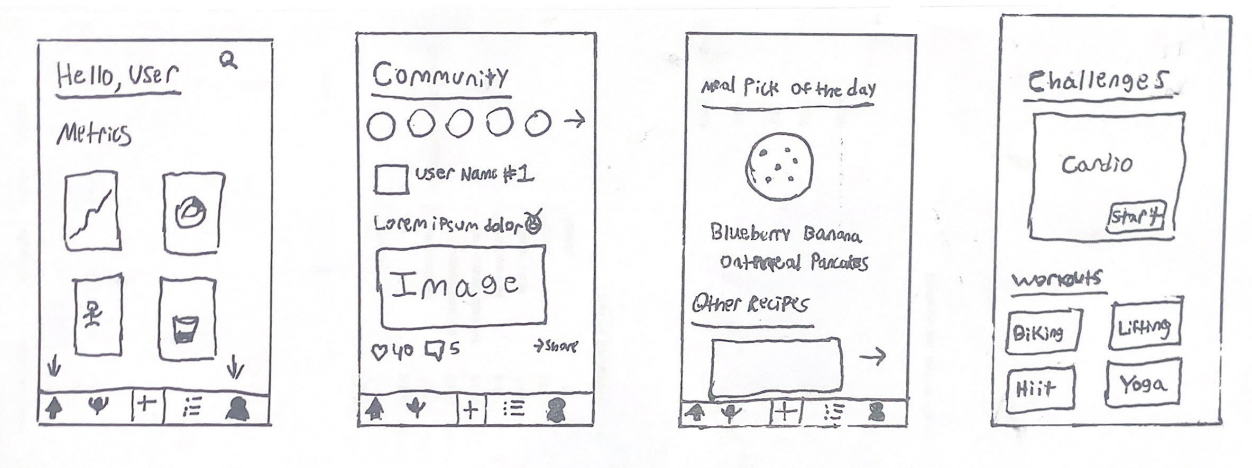 Hello, User
Metrics
Community
User Name #1
Lorem ipsum dolor
Image
40
5
Share
Meal Pick Of the day
Blueberry Banana
Oatmeal Pancakes
Other Recipes
Challenges
Cardio
Start
Workouts
Biking
Lifting
Hiit
Yoga